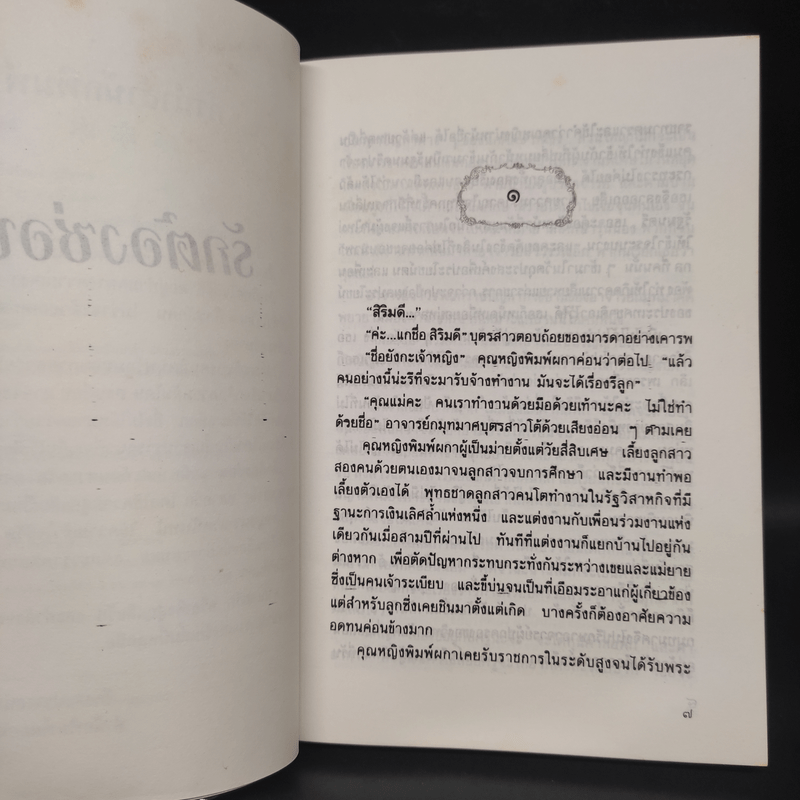 รักต้องซ่อน
๑
"สิริมดี..."
"ค่ะ...แกชื่อ สิริมดี" บุตรสาวตอบถ้อยของมารดาอย่างเคารพ
"ชื่อยังกะเจ้าหญิง" คุณหญิงพิมพ์ผกาค่อนว่าต่อไป "แล้ว
คนอย่างนี้น่ะรึที่จะมารับจ้างทำงาน มันจะได้เรื่องรึลูก"
"คุณแม่คะ คนเราทำงานด้วยมือด้วยเท้านะคะ ไม่ใช่ทำ
ด้วยชื่อ" อาจารย์กมุทมาศบุตรสาวโต้ด้วยเสียงอ่อน ๆ ตามเคย
คุณหญิงพิมพ์ผกาผู้เป็นม่ายตั้งแต่วัยสี่สิบเศษ เลี้ยงลูกสาว
สองคนด้วยตนเองมาจนลูกสาวจบการศึกษา และมีงานทำพอ
เลี้ยงตัวเองได้ พุทธชาดลูกสาวคนโตทำงานในรัฐวิสาหกิจที่มี
ฐานะการเงินเลิศล้ำแห่งหนึ่ง และแต่งงานกับเพื่อนร่วมงานแห่ง
เดียวกันเมื่อสามปีที่ผ่านไป ทันทีที่แต่งงานก็แยกบ้านไปอยู่กัน
ต่างหาก เพื่อตัดปัญหากระทบกระทั่งกันระหว่างเขยและแม่ยาย
ซึ่งเป็นคนเจ้าระเบียบ และขี้บ่นจนเป็นที่เอือมระอาแก่ผู้เกี่ยวข้อง
แต่สำหรับลูกซึ่งเคยชินมาตั้งแต่เกิด บางครั้งก็ต้องอาศัยความ
อดทนค่อนข้างมาก
คุณหญิงพิมพ์ผกาเคยรับราชการในระดับสูงจนได้รับพระ
๗